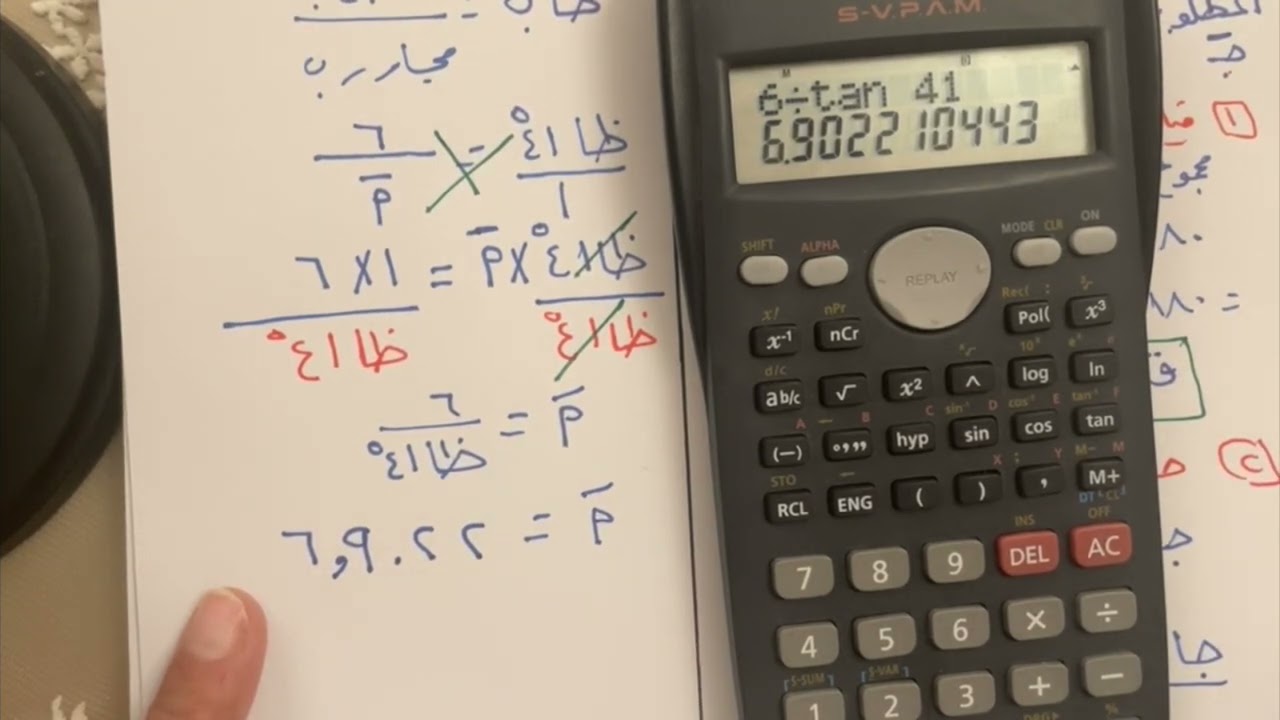 مجاور ب
ظا ٤١° / ١ = ٦ / م̄
ظا ٤١° × م̄ = ١ × ٦
ظا ٤١° ظا ٤١°
م̄ = ٦ / ظا ٤١°
م̄ = ٦,٩٠٢٢
S-V.P.A.M.
6÷tan 41
6.902210443
SHIFT ALPHA REPLAY MODE CLR ON
x! nPr Rec( : ³√
x⁻¹ nCr Pol( x³
d/c 10ˣ eˣ e
ab/c √ x² ^ log ln
A B C sin⁻¹ D cos⁻¹ E tan⁻¹ F
(−) °,,, hyp sin cos tan
STO X ; Y M− M
RCL ENG ( ) , M+
DT CL
INS OFF
7 8 9 DEL AC
4 5 6 × ÷
S-SUM S-VAR
1 2 3 + −
DRG▸ %
١
٨٠
= ١٨٠
٢
جا